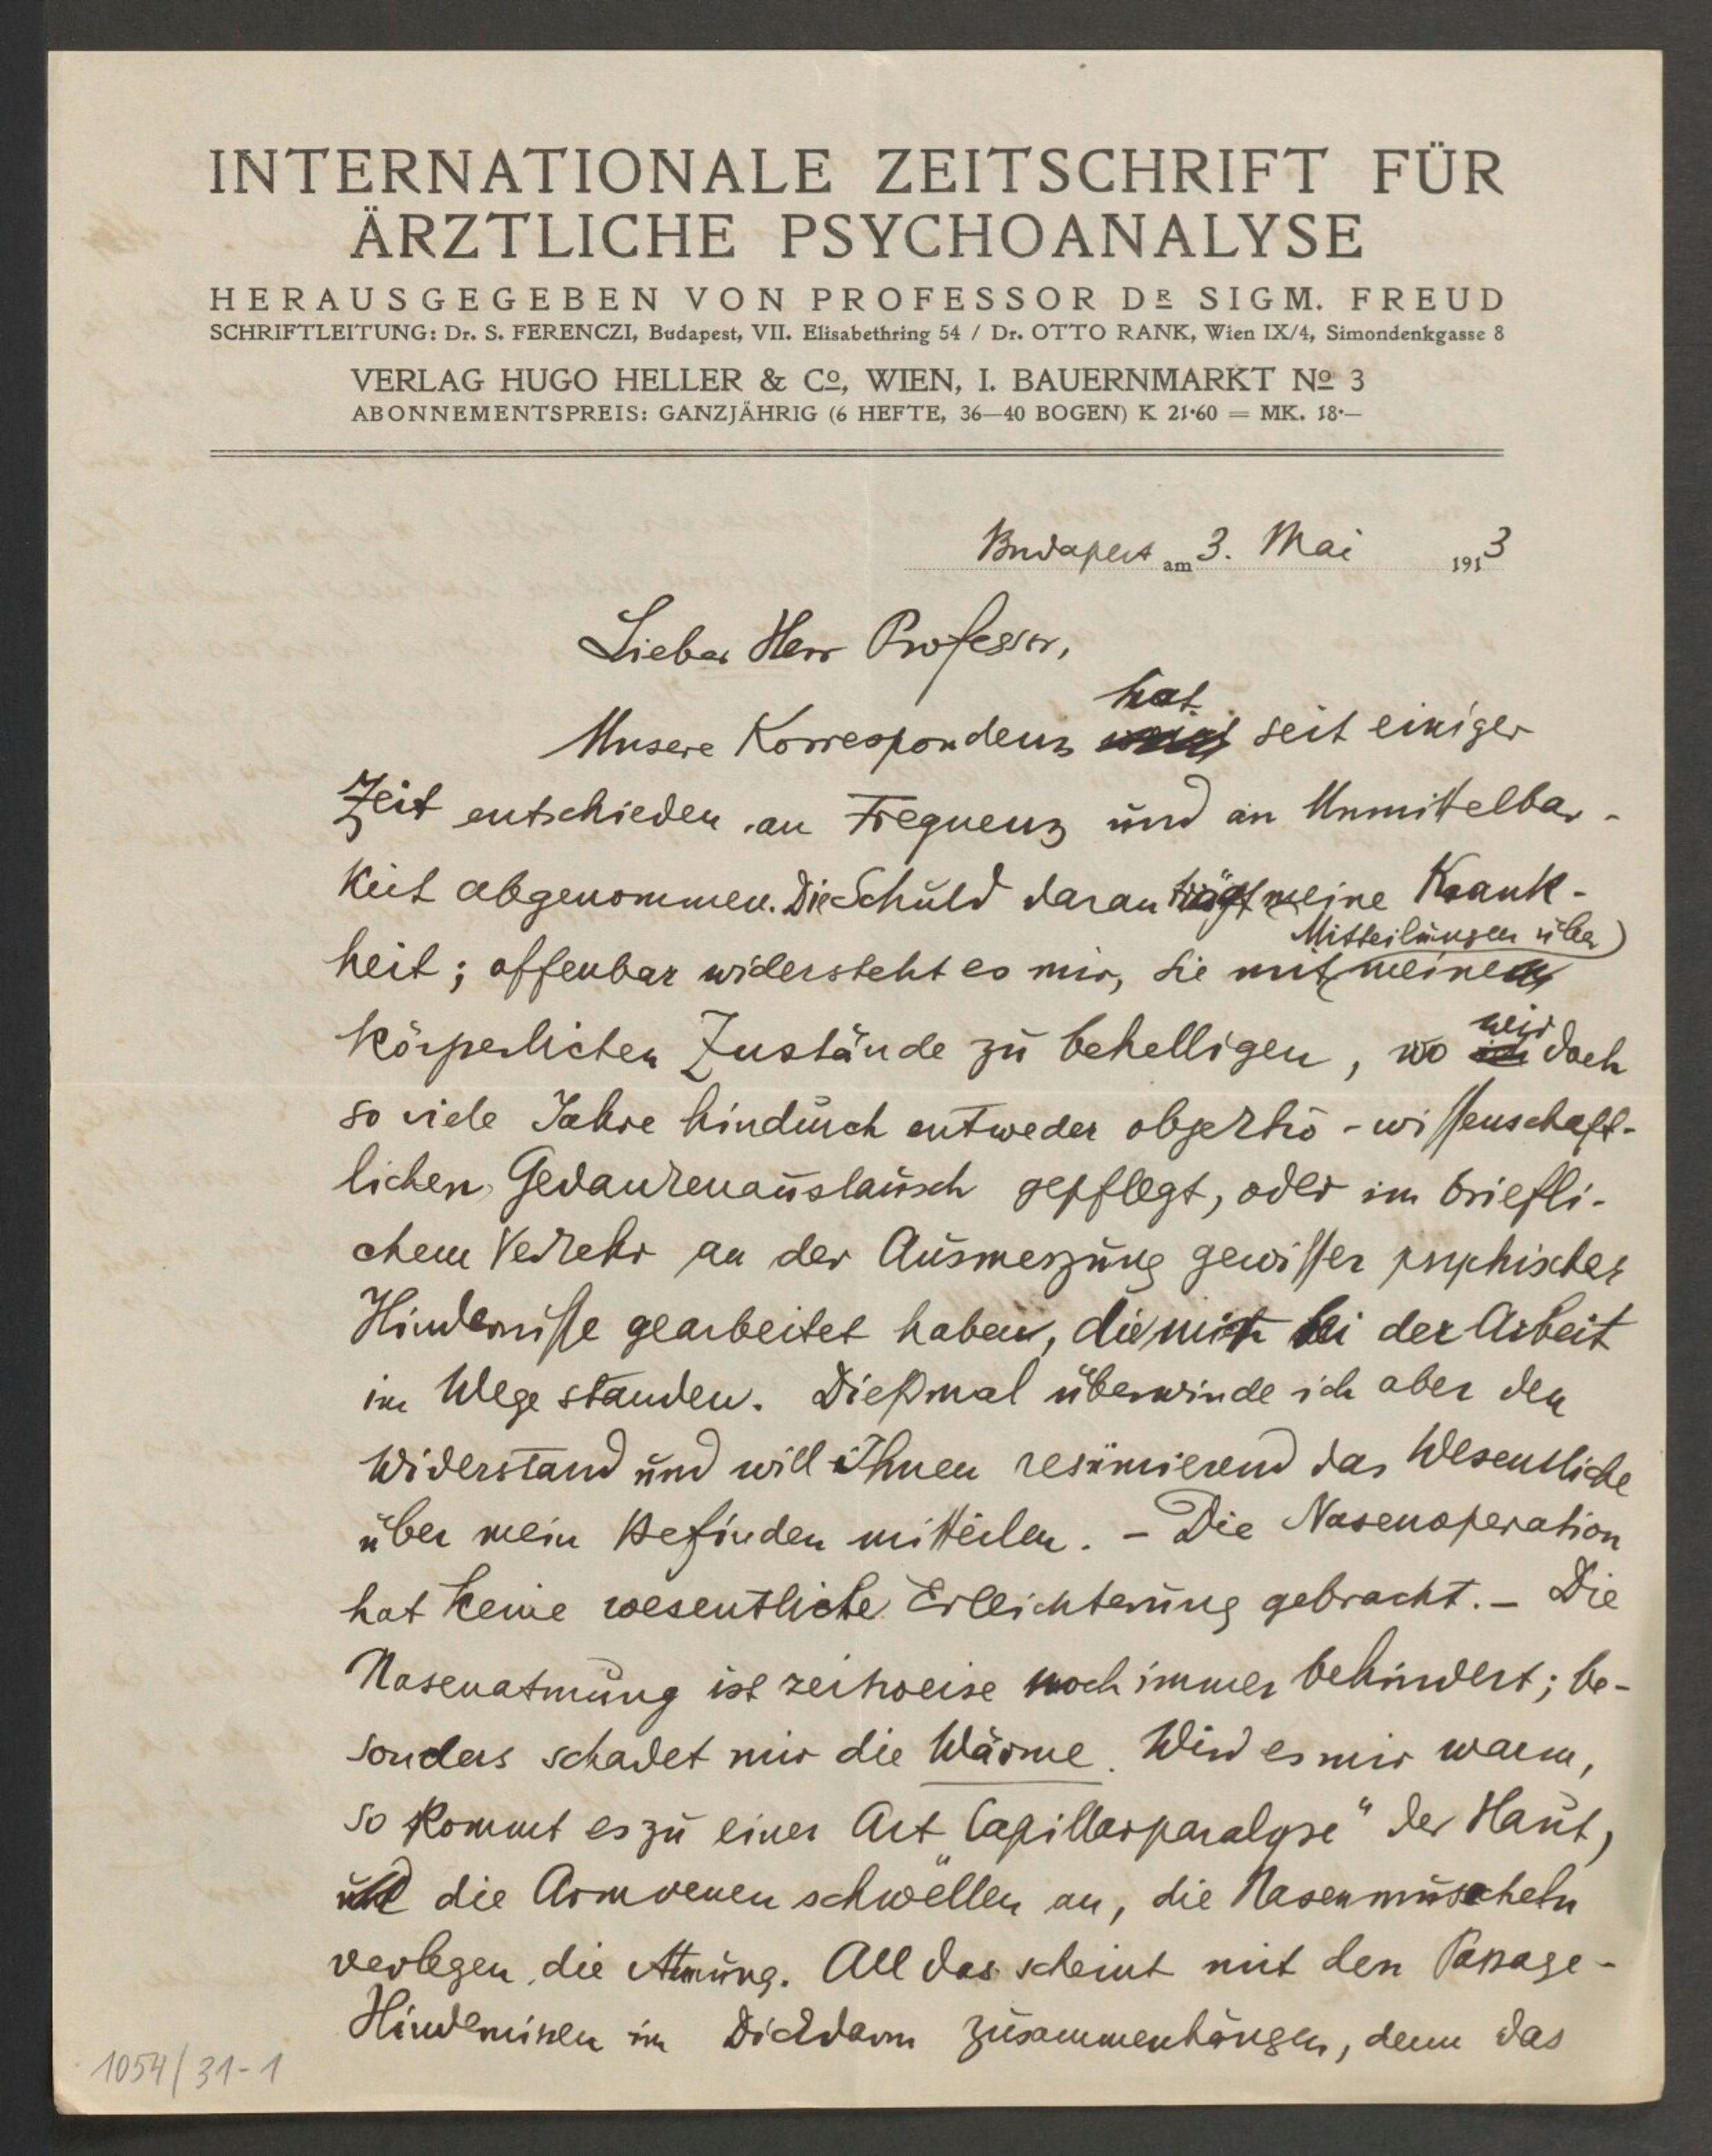 INTERNATIONALE ZEITSCHRIFT FÜR
ÄRZTLICHE PSYCHOANALYSE
HERAUSGEGEBEN VON PROFESSOR DR SIGM. FREUD
SCHRIFTLEITUNG: Dr. S. FERENCZI, Budapest, VII. Elisabethring 54 / Dr. OTTO RANK, Wien IX/4, Simondenkgasse 8
VERLAG HUGO HELLER & Co, WIEN, I. BAUERNMARKT No 3
ABONNEMENTSPREIS: GANZJÄHRIG (6 HEFTE, 36—40 BOGEN) K 21·60 = MK. 18·—
Budapest am 3. Mai 1913
Lieber Herr Professor,
Unsere Korrespondenz hat seit einiger
Zeit entschieden an Frequenz und an Unmittelbar-
keit abgenommen. Die Schuld daran trägt meine Krank-
heit; offenbar widersteht es mir, Sie mit Mitteilungen über meine
körperlichen Zustände zu behelligen, wo wir doch
so viele Jahre hindurch entweder objektiv-wissenschaft-
lichen Gedankenaustausch gepflegt, oder im briefli-
chem Verkehr an der Ausmerzung gewisser psychischer
Hindernisse gearbeitet haben, die mir bei der Arbeit
im Wege standen. Dießmal überwinde ich aber den
Widerstand und will Ihnen resümierend das Wesentliche
über mein Befinden mitteilen. – Die Nasenoperation
hat keine wesentliche Erleichterung gebracht. – Die
Nasenatmung ist zeitweise noch immer behindert; be-
sonders schadet mir die Wärme. Wird es mir warm,
so kommt es zu einer Art „Capillarparalyse“ der Haut,
die Armvenen schwellen an, die Nasenmuscheln
verlegen die Atmung. All das scheint mit den Passage-
Hindernissen im Dickdarm zusammenhängen, denn das
1054/31-1